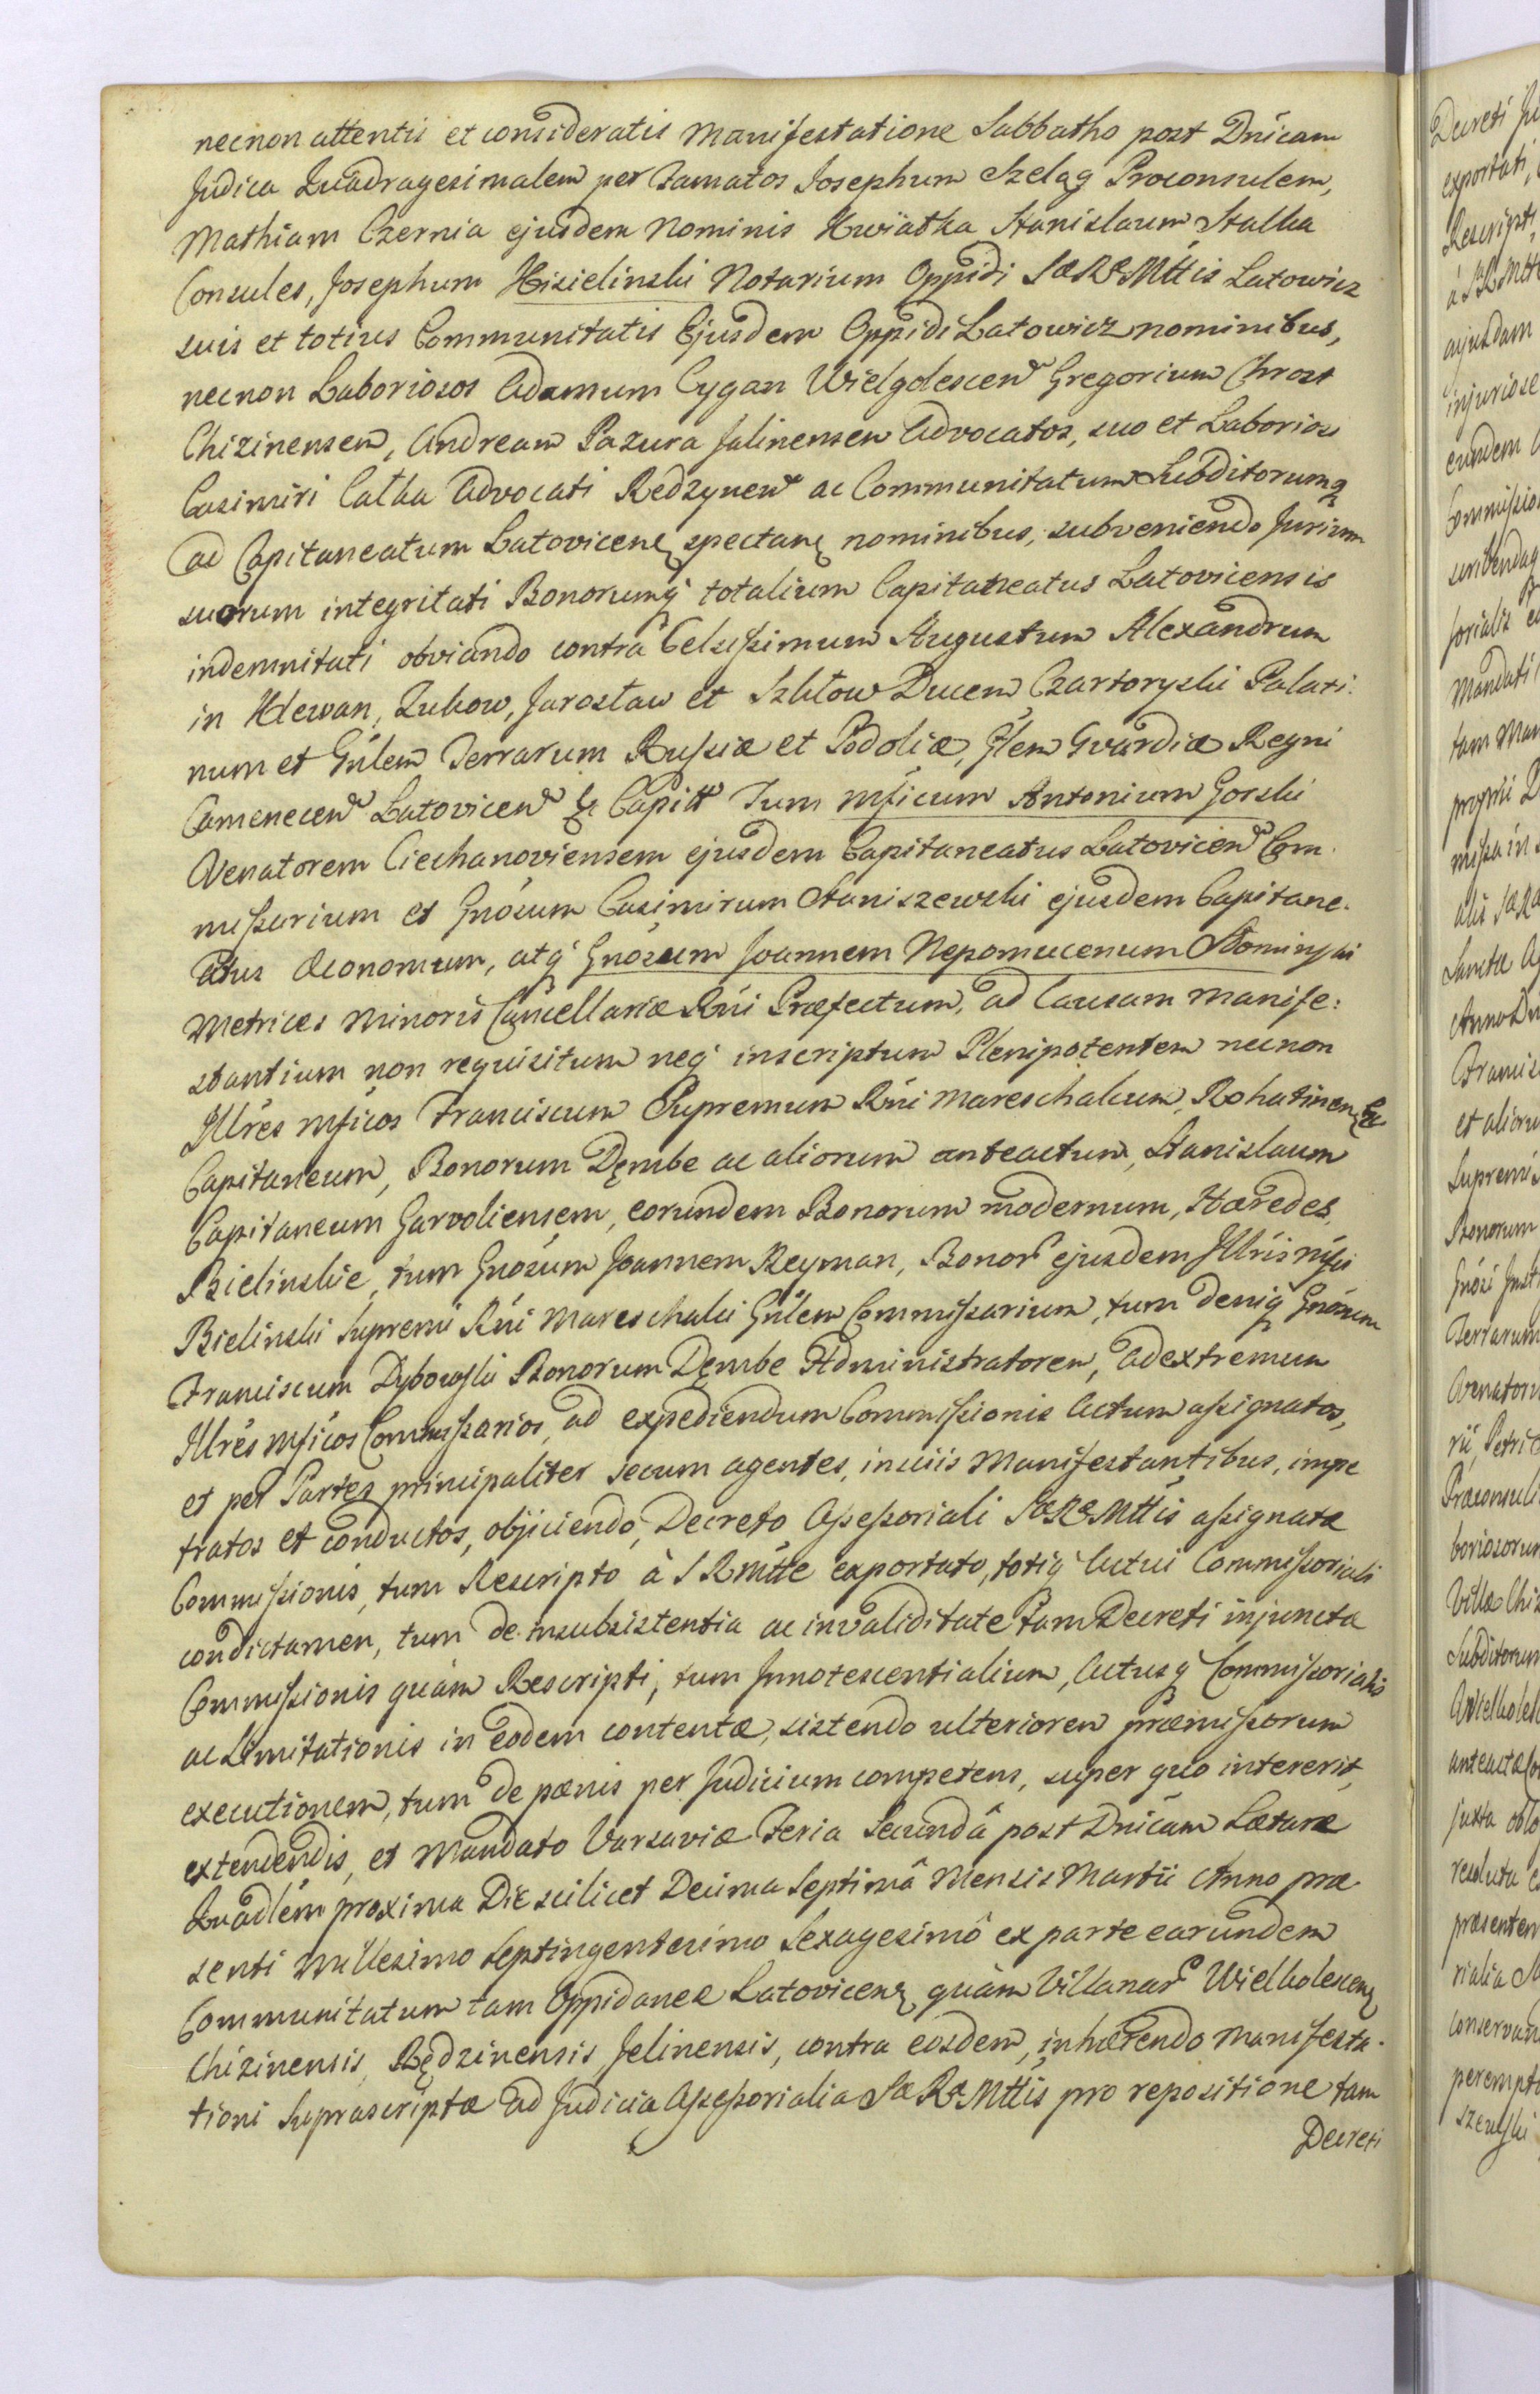 necnon attentis et consideratis Manifestatione Sabbatho post Dnicam
Judica Quadragesimalem per Famatos Josephum Szeląg Proconsulem,
Mathiam Czernia ejusdem Nominis Kwiatka Stanislaum Stalka
Consules, Josephum Kisielinski Notarium Oppidi SæRæMttis Latowicz
suis et totius Communitatis Ejusdem Oppidi Latowicz nominibus,
necnon Laboriosos Adamum Cygan Wielgolescen Gregorium Chrost
Chizinensem, Andream Pazura Jalinensem Advocatos, suo et Laboriosi
Casimiri Catka Advocati Redzynen ac Communitatum Subditorumq
ad Capitaneatum Latovicen spectan nominibus, subveniendo Jurium
suorum integritati Bonorumq totalium Capitaneatus Latovicensis
indemnitati obviando contra Celsissimum Augustum Alexandrum
in Klewan, Zukow, Jaroslaw et Szkłow Ducem Czartoryski Palati:
num et Gnlem Terrarum Russiæ et Podoliæ, Glem Gvardiæ Regni
Camenecen Latovicen &c Capitt Tum Mficum Antonium Gorski
Venatorem Ciechanoviensem ejusdem Capitaneatus Latovicen Com.
missarium et Gnosum Casimirum Staniszewski ejusdem Capitane.
atus Oeconomum, atq Gnosum Joannem Nepomucenum Słominski
Metrices Minoris Cancellariæ Rni Præfectum, ad Causam manife:
stantium non requisitum neq inscriptum Plenipotentem necnon
Illres Mficos Franciscum Supremum Rni Mareschalcum, Rohatinen &c
Capitaneum, Bonorum Dęmbe ac aliorum anteactum, Stanislaum
Capitaneum Garvoliensem, eorundem Bonorum modernum, Hæredes,
Bielinskie, tum Gnosum Joannem Reyman, Bonor ejusdem Illris Mfci
Bielinski Supremi Rni Mareschalci Gnlem Commissarium, tum deniq Gnosum
Franciscum Dybowski Bonorum Dęmbe Administratorem, ad extremum
Illres Mficos Commissarios, ad expediendum Commissionis Actum assignatos,
et per Partes principaliter secum agentes, insciis Manifestantibus, impe
tratos et conductos, objiciendo, Decreto Assessoriali SæRæMttis assignatæ
Commissionis, tum Rescripto à SRMtte exportato, totiq Actui Commissoriali
condictamen, tum de insubsistentia ac invaliditate tam Decreti injunctæ
Commissionis quàm Rescripti, tum Innotescentialium, Actusq Commissorialis
ac Limitationis in eodem contentæ, sistendo ulteriorem præmissorum
executionem, tum de pænis per Judicium competens, super quo intererit,
extendendis, et Mandato Varsaviæ Feria Secundâ post Dnicam Lætare
Quadlem proxima Die scilicet Decima Septimâ Mensis Martii Anno præ
senti Millesimo Septingentesimo Sexagesimô ex parte earundem
Communitatum tam Oppidaneæ Latovicen quàm Villanar Wielkolescen
Chizinensis, Rędzinensis Jelinensis, contra eosdem, inhærendo Manifesta.
tioni Suprascriptæ ad Judicia Assessorialia SæRæMttis pro repositione tam
Decreti